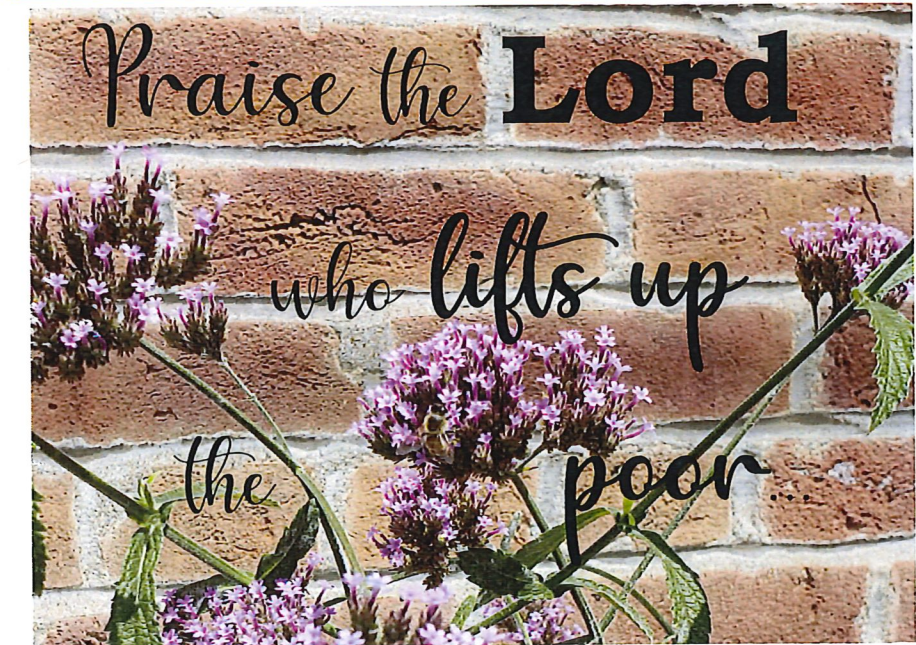 Praise the Lord
who lifts up
the poor...